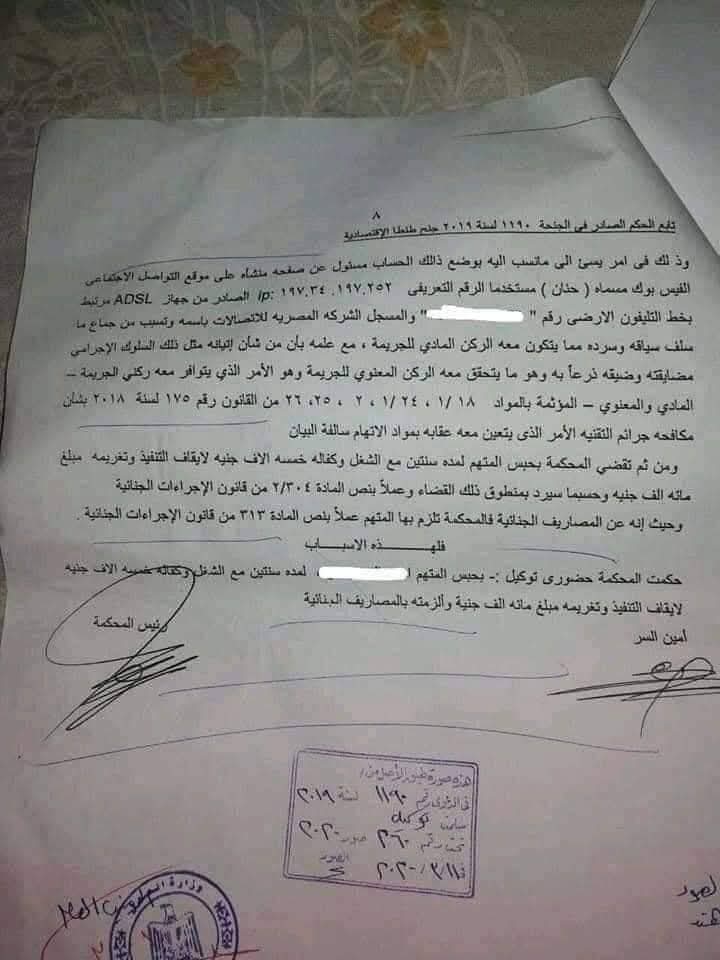 ٨
تابع الحكم الصادر فى الجنحة ١١٩٠ لسنة ٢٠١٩ جنح طنطا الإقتصادية
وذ لك فى امر يسئ الى مانسب اليه بوضع ذالك الحساب مسئول عن صفحه منشأه على موقع التواصل الاجتماعى
الفيس بوك مسماه ( حنان ) مستخدما الرقم التعريفى ١٩٧.٢٥٢ .١٩٧.٣٤ :ip الصادر من جهاز ADSL مرتبط
بخط التليفون الارضى رقم " " والمسجل الشركه المصريه للاتصالات باسمه وتسبب من جماع ما
سلف سياقه وسرده مما يتكون معه الركن المادي للجريمة ، مع علمه بأن من شأن إتيانه مثل ذلك السلوك الإجرامي
مضايقته وضيقه ذرعاً به وهو ما يتحقق معه الركن المعنوي للجريمة وهو الأمر الذي يتوافر معه ركني الجريمة –
المادي والمعنوي – المؤثمة بالمواد ١/١٨ ، ١/٢٤ ، ٢ ، ٢٥، ٢٦ من القانون رقم ١٧٥ لسنة ٢٠١٨ بشأن
مكافحه جرائم التقنيه الأمر الذى يتعين معه عقابه بمواد الاتهام سالفة البيان
ومن ثم تقضي المحكمة بحبس المتهم لمده سنتين مع الشغل وكفاله خمسه الاف جنيه لايقاف التنفيذ وتغريمه مبلغ
مائه الف جنيه وحسبما سيرد بمنطوق ذلك القضاء وعملاً بنص المادة ٢/٣٠٤ من قانون الإجراءات الجنائية
وحيث إنه عن المصاريف الجنائية فالمحكمة تلزم بها المتهم عملاً بنص المادة ٣١٣ من قانون الإجراءات الجنائية .
فلهـــــذه الاسبـــاب
حكمت المحكمة حضورى توكيل :- بحبس المتهم لمده سنتين مع الشغل وكفاله خمسه الاف جنيه
لايقاف التنفيذ وتغريمه مبلغ مائه الف جنية وألزمته بالمصاريف الجنائية
أمين السر
رئيس المحكمة
هذه صورة طبق الأصل من
فى الدعوى رقم ١١٩٠ لسنة ٢٠١٩
سلمت توكيل
تحت رقم ٣٦٠ صور ٢٠٢٠
فى ٣/١١/ ٢٠٢٠
الصور
وزارة العدل